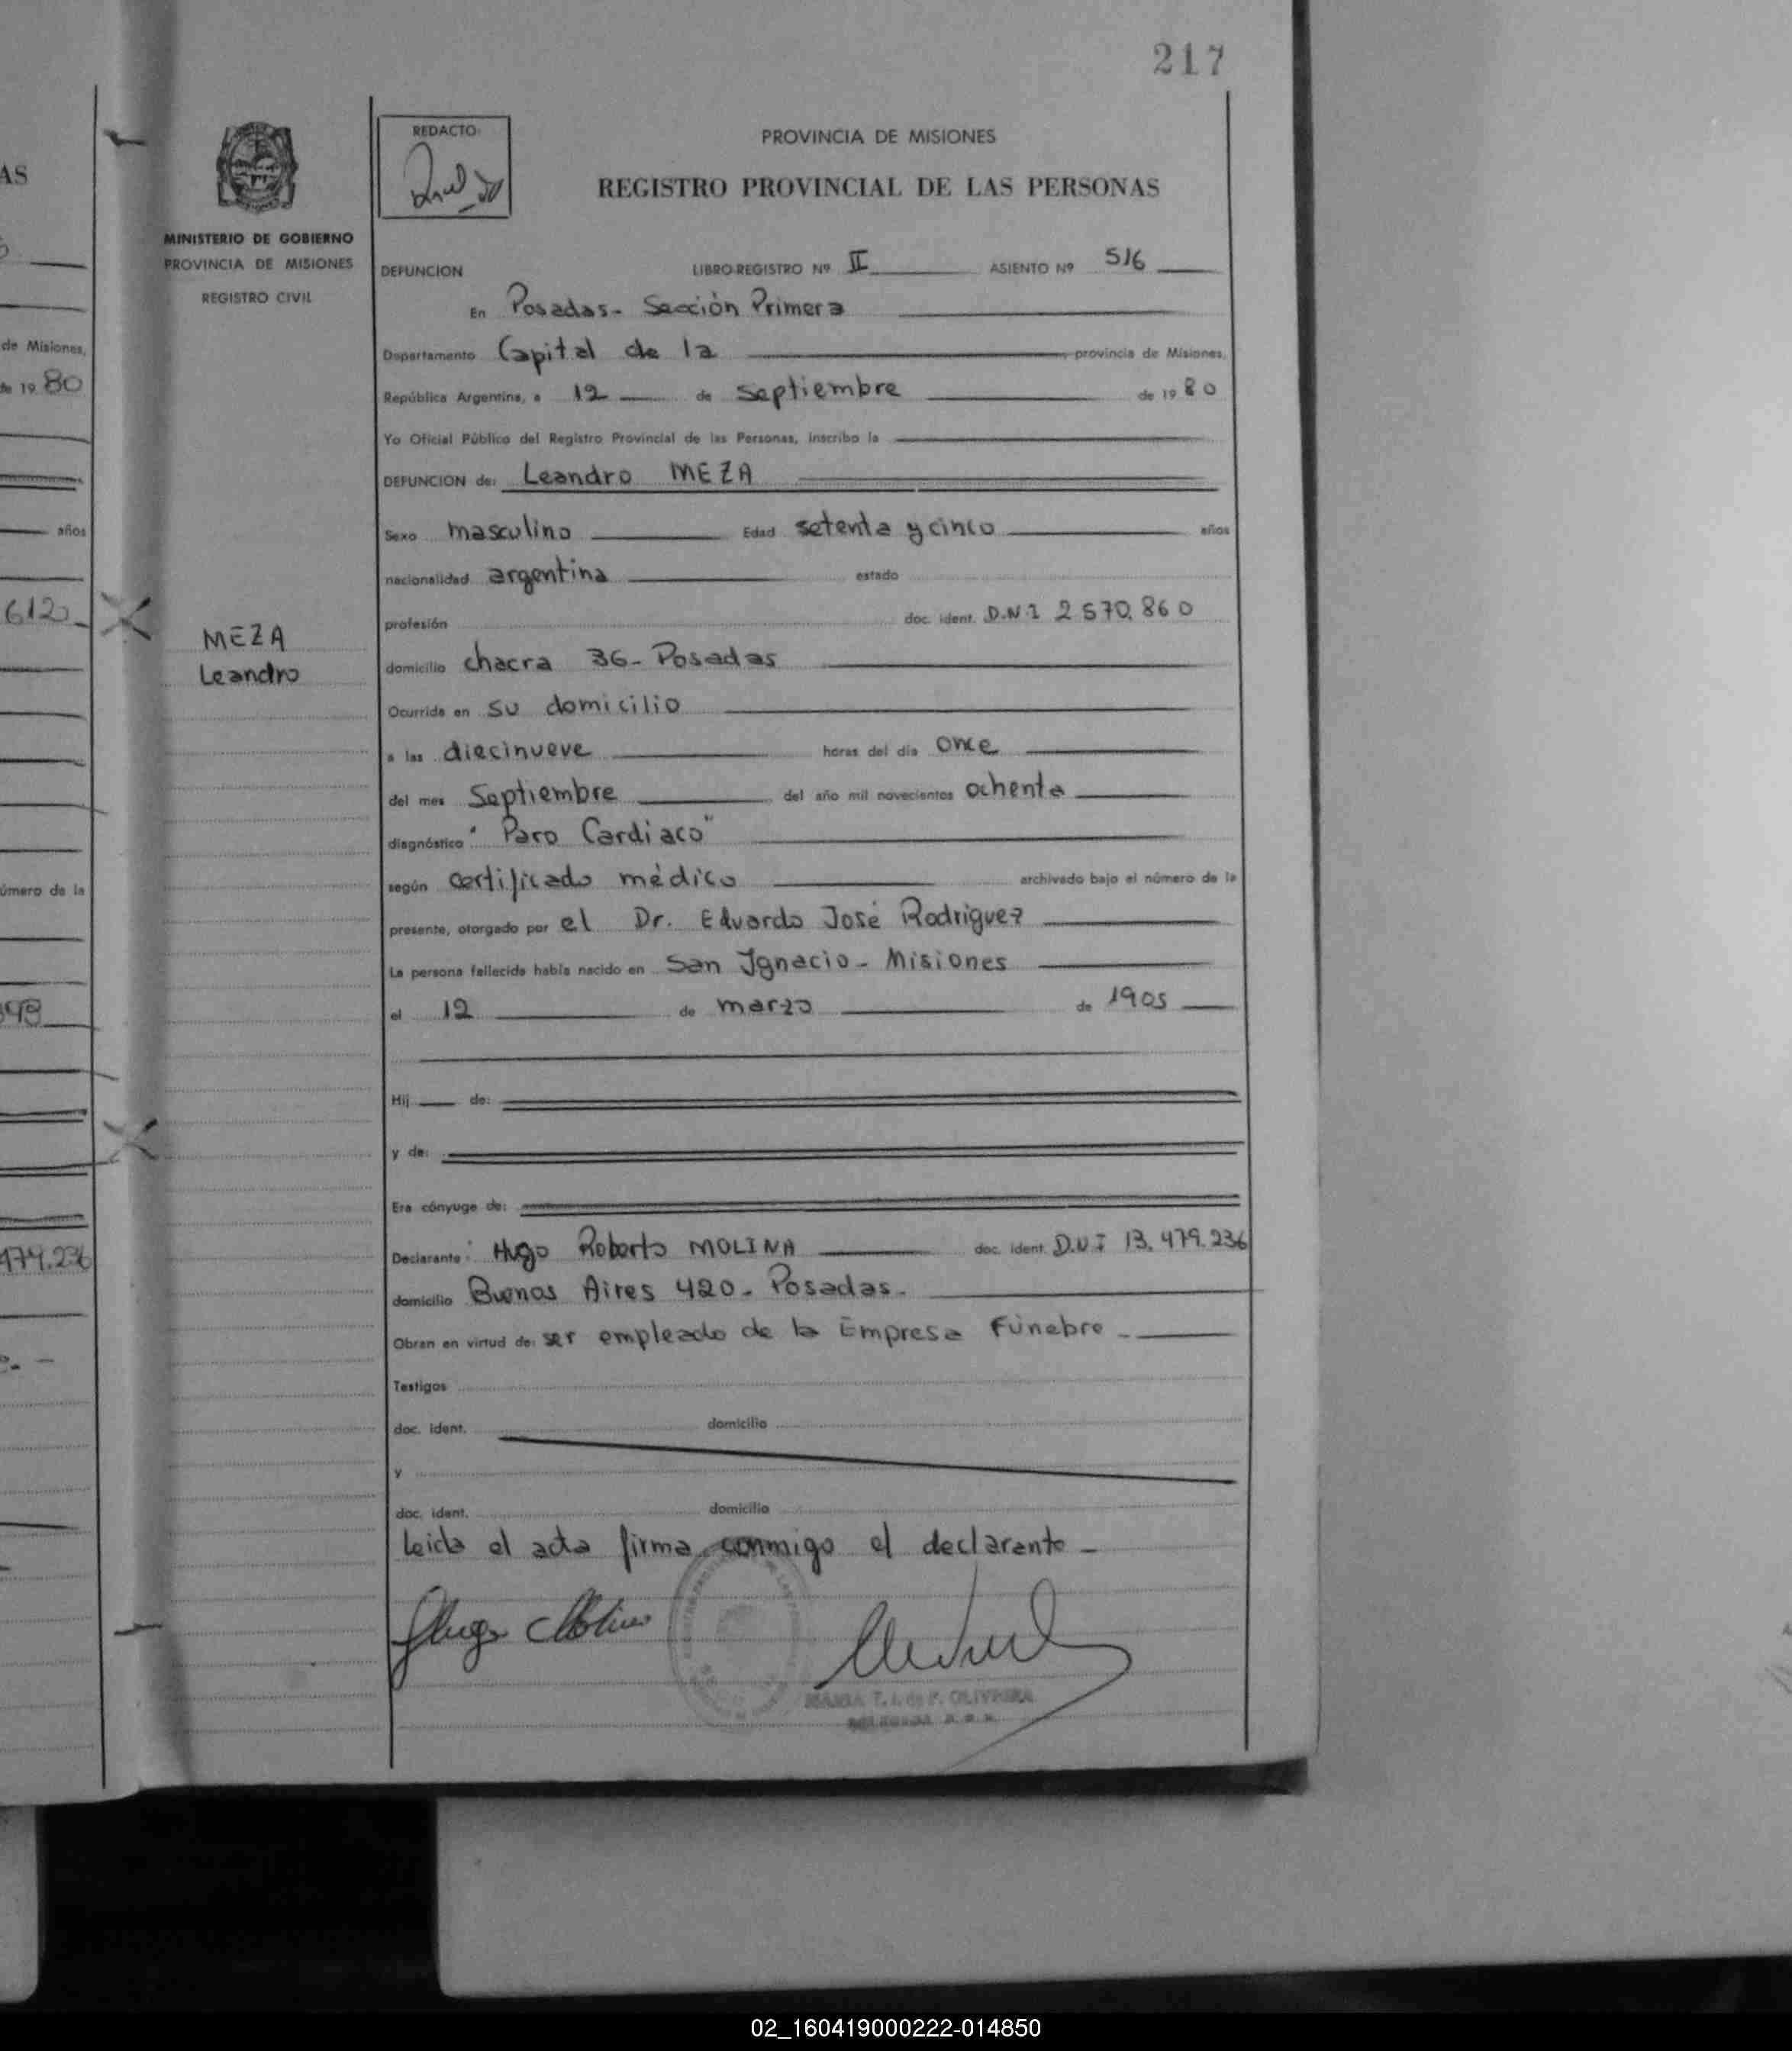 217
AS
de Misiones,
de 19 80
años
612
úmero de la
MINISTERIO DE GOBIERNO
PROVINCIA DE MISIONES
REGISTRO CIVIL
MEZA
Leandro
REDACTO
PROVINCIA DE MISIONES
REGISTRO PROVINCIAL DE LAS PERSONAS
DEFUNCION LIBRO-REGISTRO Nº II ASIENTO Nº 516
En Posadas - Sección Primera
Departamento Capital de la provincia de Misiones,
República Argentina, a 12 de septiembre de 19 80
Yo Oficial Público del Registro Provincial de las Personas, inscribo la
DEFUNCION de: Leandro MEZA
Sexo masculino Edad setenta y cinco años
nacionalidad argentina estado
profesión doc. ident. D.N.I 2 570.860
domicilio chacra 36 - Posadas
Ocurrida en su domicilio
a las diecinueve horas del día once
del mes Septiembre del año mil novecientos ochenta
diagnóstico "Paro Cardiaco"
según certificado médico archivado bajo el número de la
presente, otorgado por el Dr. Eduardo José Rodriguez
La persona fallecida había nacido en San Ignacio - Misiones
el 12 de marzo de 1905
Hij de:
y de:
Era cónyuge de:
Declarante: Hugo Roberto MOLINA doc. ident. D.N.I 13.479.236
domicilio Buenos Aires 420 - Posadas.
Obran en virtud de: ser empleado de la Empresa Fúnebre -
Testigos
doc. ident. domicilio
y
doc. ident. domicilio
Leida el acta firma conmigo el declarante -
Hugo Molina
OLIVEIRA
02_160419000222-014850